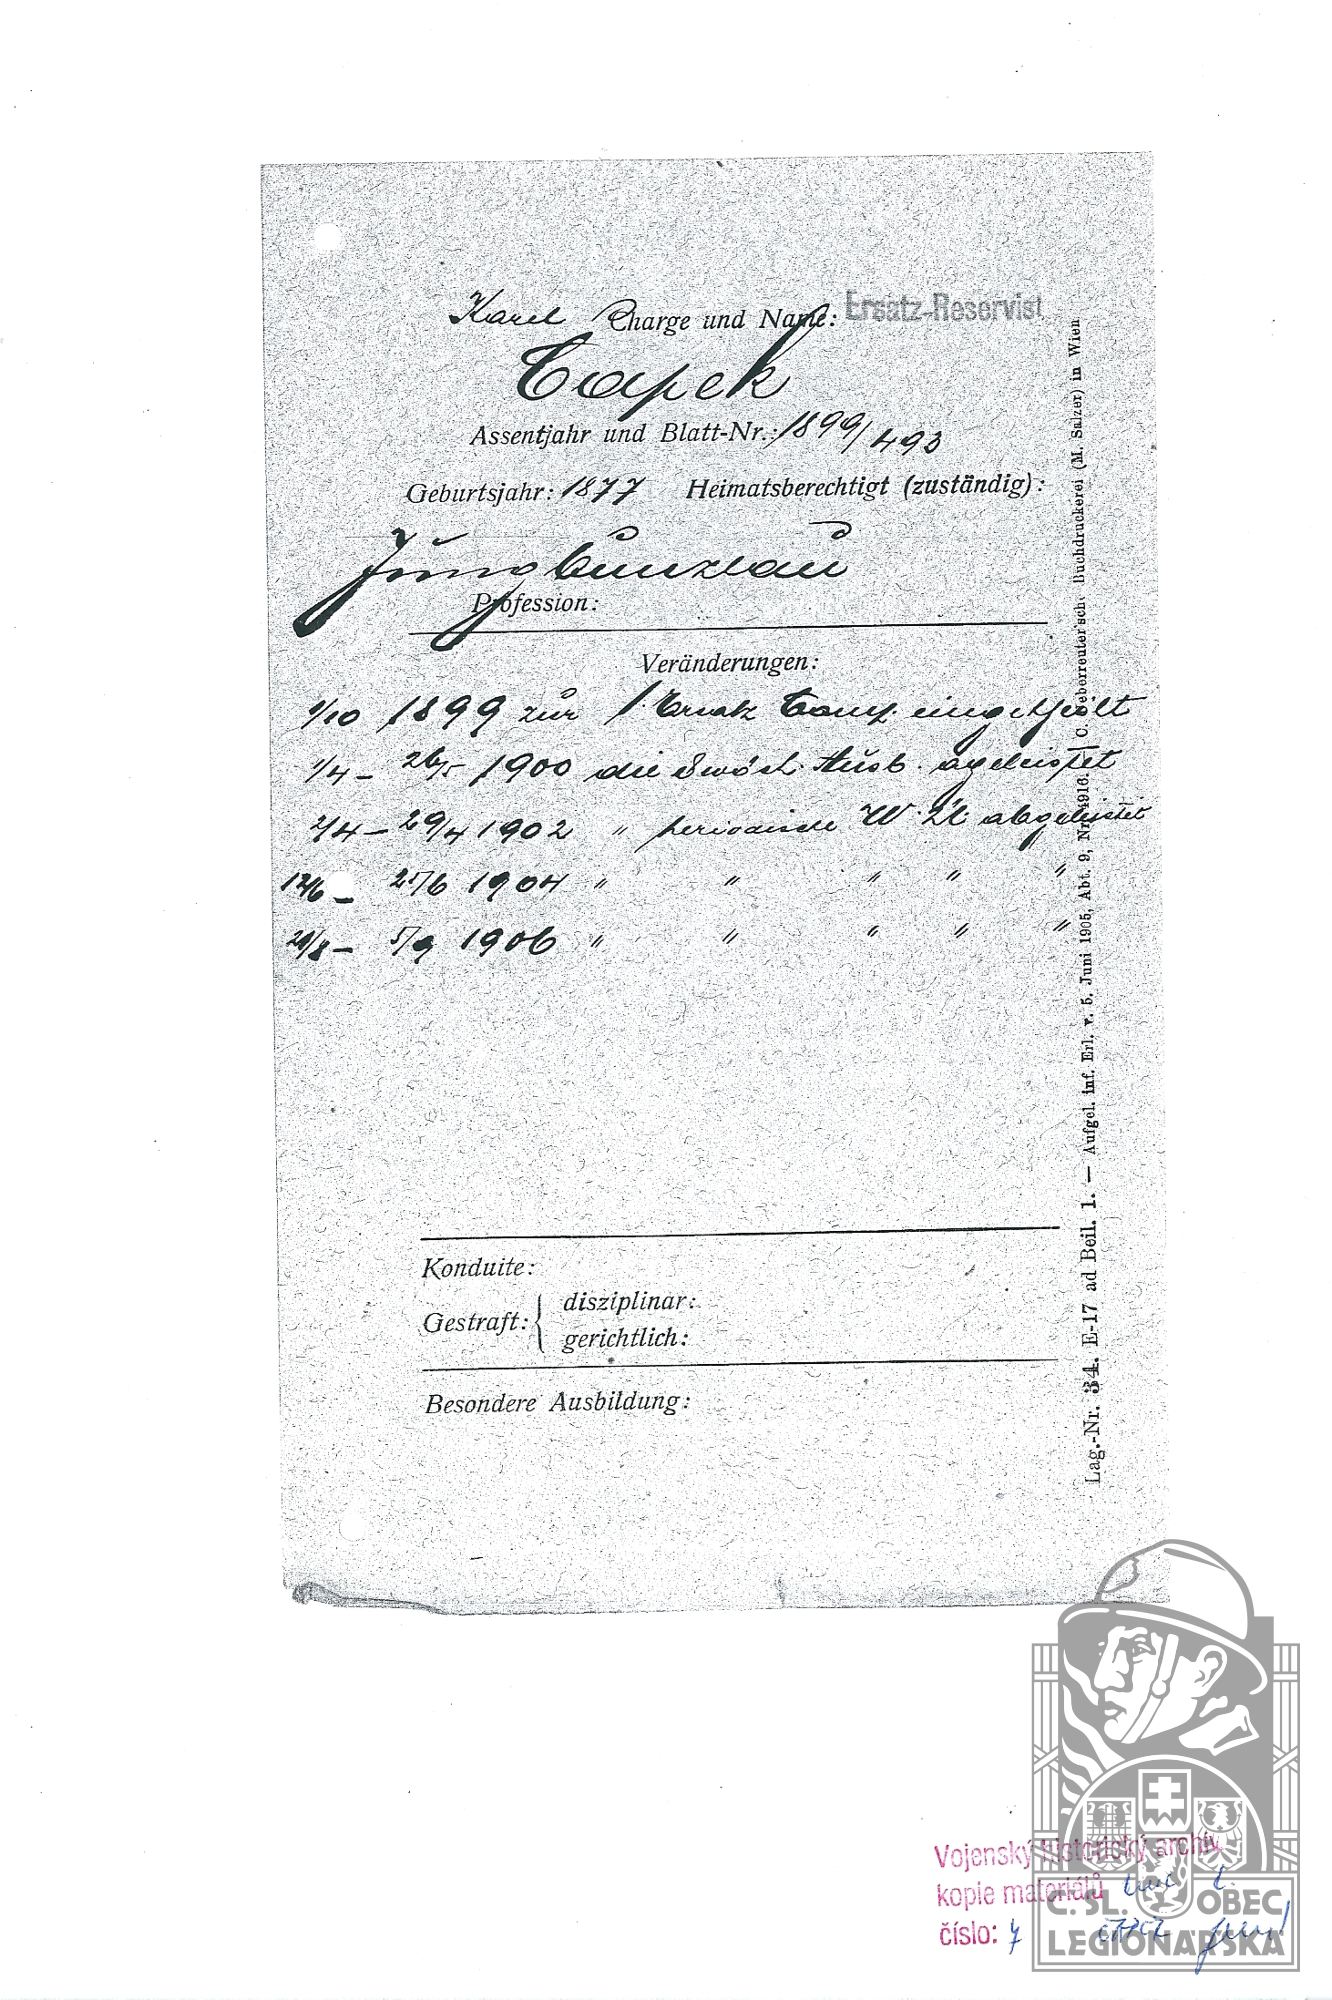 Karel Charge und Name: Ersatz-Reservist
Čapek
Assentjahr und Blatt-Nr.: 1899/493
Geburtsjahr: 1877 Heimatsberechtigt (zuständig):
Jungbunzlau
Profession:
Veränderungen:
1/10 1899 zur 1 Ersatz Comp. eingetheilt
1/4 - 26/5 1900 die 8 wöch. Ausb. ageleistet
2/4 - 29/4 1902 " periodische W. Üb. abgeleistet
12/6 - 25/6 1904 " " " " "
29/8 - 5/9 1906 " " " " "
Konduite:
Gestraft: { disziplinar:
gerichtlich:
Besondere Ausbildung:
Lag.-Nr. 34. E-17 ad Beil. 1. — Aufgel. inf. Erl. v. 5. Juni 1905, Abt. 9, Nr. 4916. C. Ueberreuter'sche Buchdruckerei (M. Salzer) in Wien
Vojenský historický archiv
kopie materiálů
číslo: 7
Č. SL. OBEC
LEGIONÁŘSKÁ